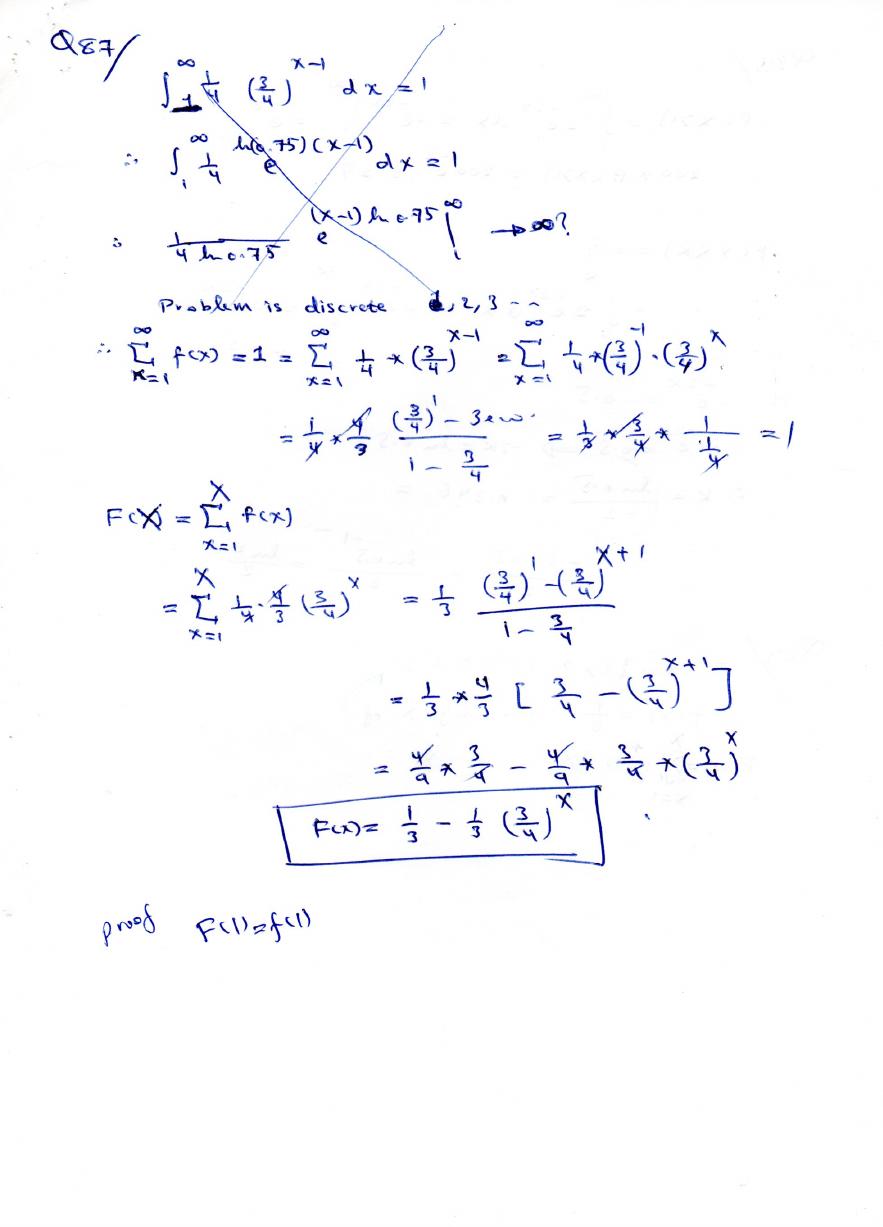 Q87/
∫₁^∞ 1/4 (3/4)^(x-1) dx = 1
∴ ∫₁^∞ 1/4 e^(ln(0.75)(x-1)) dx = 1
∴ 1/(4 ln 0.75) e^((x-1) ln 0.75) |₁^∞ → ∞?
Problem is discrete 1, 2, 3 --
∴ Σ_(x=1)^∞ f(x) = 1 = Σ_(x=1)^∞ 1/4 * (3/4)^(x-1) = Σ_(x=1)^∞ 1/4 * (3/4)^(-1) · (3/4)^x
= 1/4 * 4/3 ((3/4)^1 - zero)/(1 - 3/4) = 1/3 * 3/4 * 1/(1/4) = 1
F(X) = Σ_(x=1)^X f(x)
= Σ_(x=1)^X 1/4 · 4/3 (3/4)^x = 1/3 ((3/4)^1 - (3/4)^(X+1))/(1 - 3/4)
= 1/3 * 4/3 [ 3/4 - (3/4)^(X+1) ]
= 4/9 * 3/4 - 4/9 * 3/4 * (3/4)^X
F(x) = 1/3 - 1/3 (3/4)^X
proof F(1) = f(1)